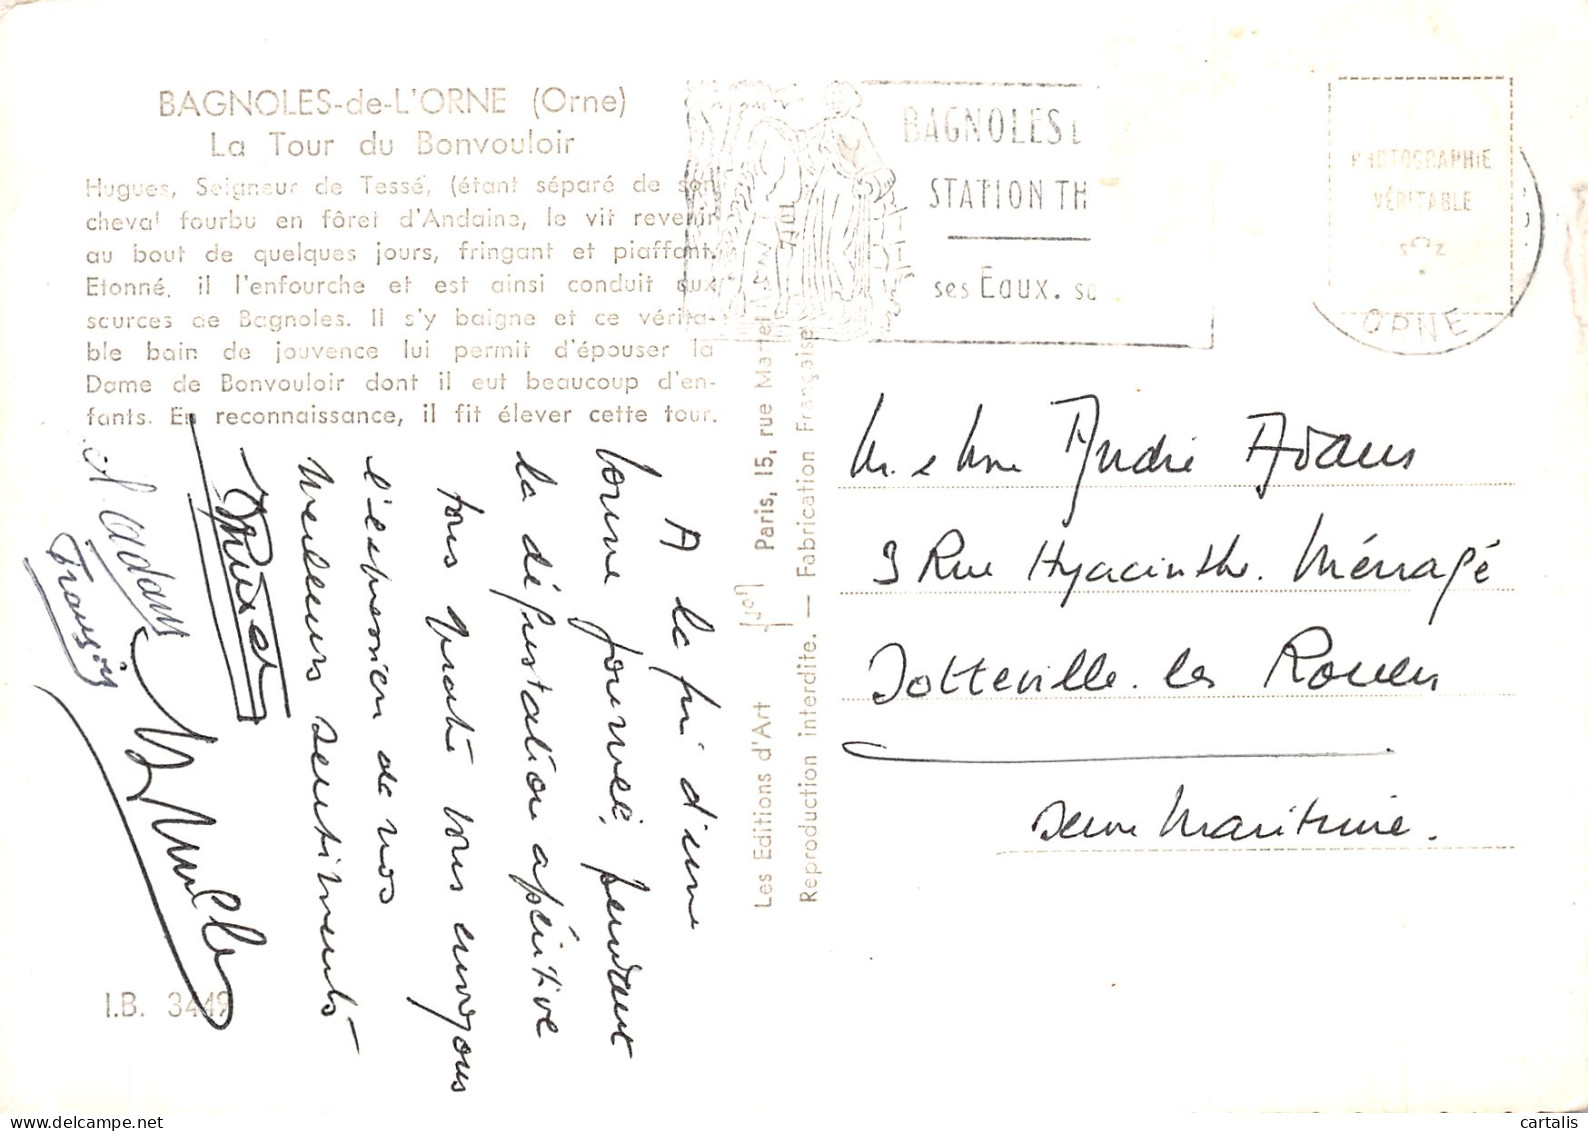 BAGNOLES-de-L'ORNE (Orne)
La Tour du Bonvouloir
Hugues, Seigneur de Tessé, (étant séparé de son
cheval fourbu en fôret d'Andaine, le vit revenir
au bout de quelques jours, fringant et piaffant.
Etonné. il l'enfourche et est ainsi conduit aux
sources de Bagnoles. Il s'y baigne et ce vérita-
ble bain de jouvence lui permit d'épouser la
Dame de Bonvouloir dont il eut beaucoup d'en-
fants. En reconnaissance, il fit élever cette tour.
A la fin d'une
bonne journée, pendant
la dégustation apéritive
tous quatre vous envoyons
l'expression de nos
meilleurs sentiments
Adam
François
I.B. 3449
Les Editions d'Art Paris, 15, rue Martel
Reproduction interdite. — Fabrication Française
BAGNOLES
STATION TH
ses Eaux. s
PHOTOGRAPHIE
VÉRITABLE
ORNE
M. & Mme André Adam
9 Rue Hyacinthe. Ménagé
Sotteville. les Rouen
Seine Maritime.
cartalis